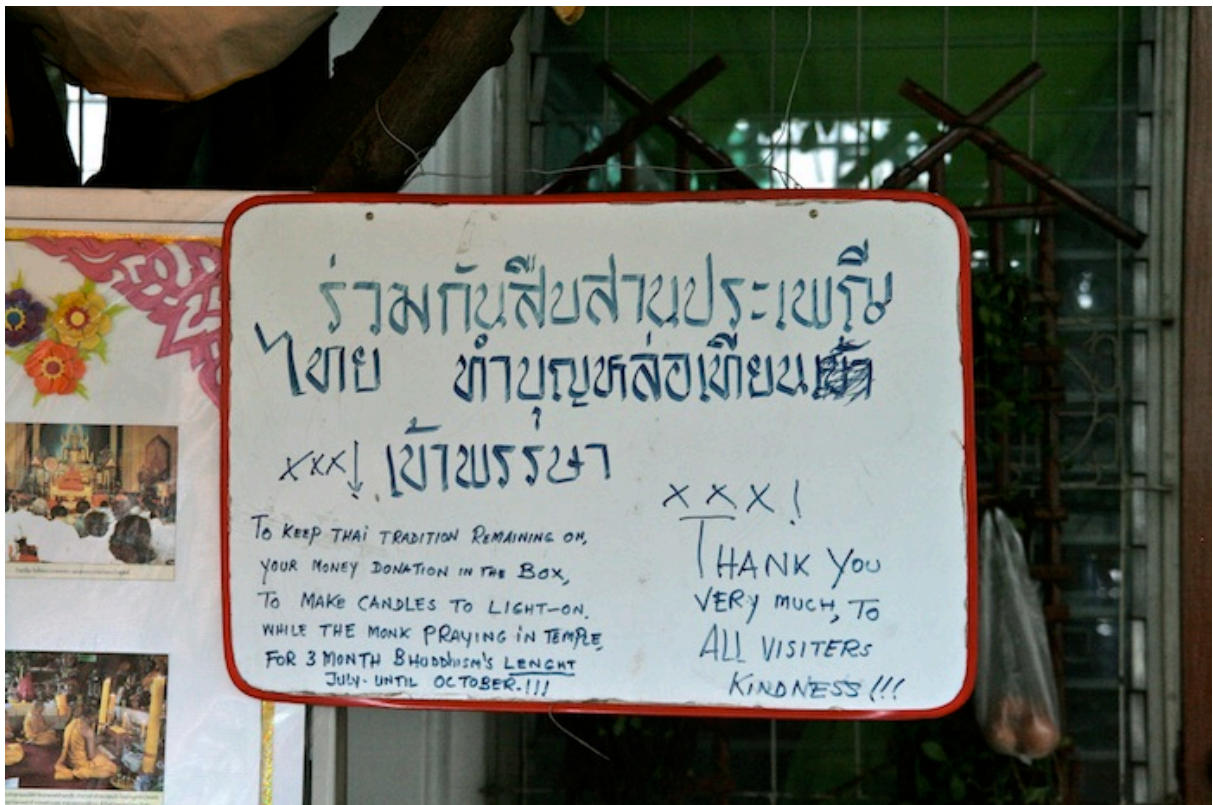 ร่วมกันสืบสานประเพณี
ไทย ทำบุญหล่อเทียน
xxx! เข้าพรรษา
TO KEEP THAI TRADITION REMAINING ON,
YOUR MONEY DONATION IN THE BOX,
TO MAKE CANDLES TO LIGHT-ON.
WHILE THE MONK PRAYING IN TEMPLE,
FOR 3 MONTH BHODDHISM'S LENGHT
JULY-UNTIL OCTOBER.!!!
xxx!
THANK YOU
VERY MUCH, TO
ALL VISITERS
KINDNESS!!!